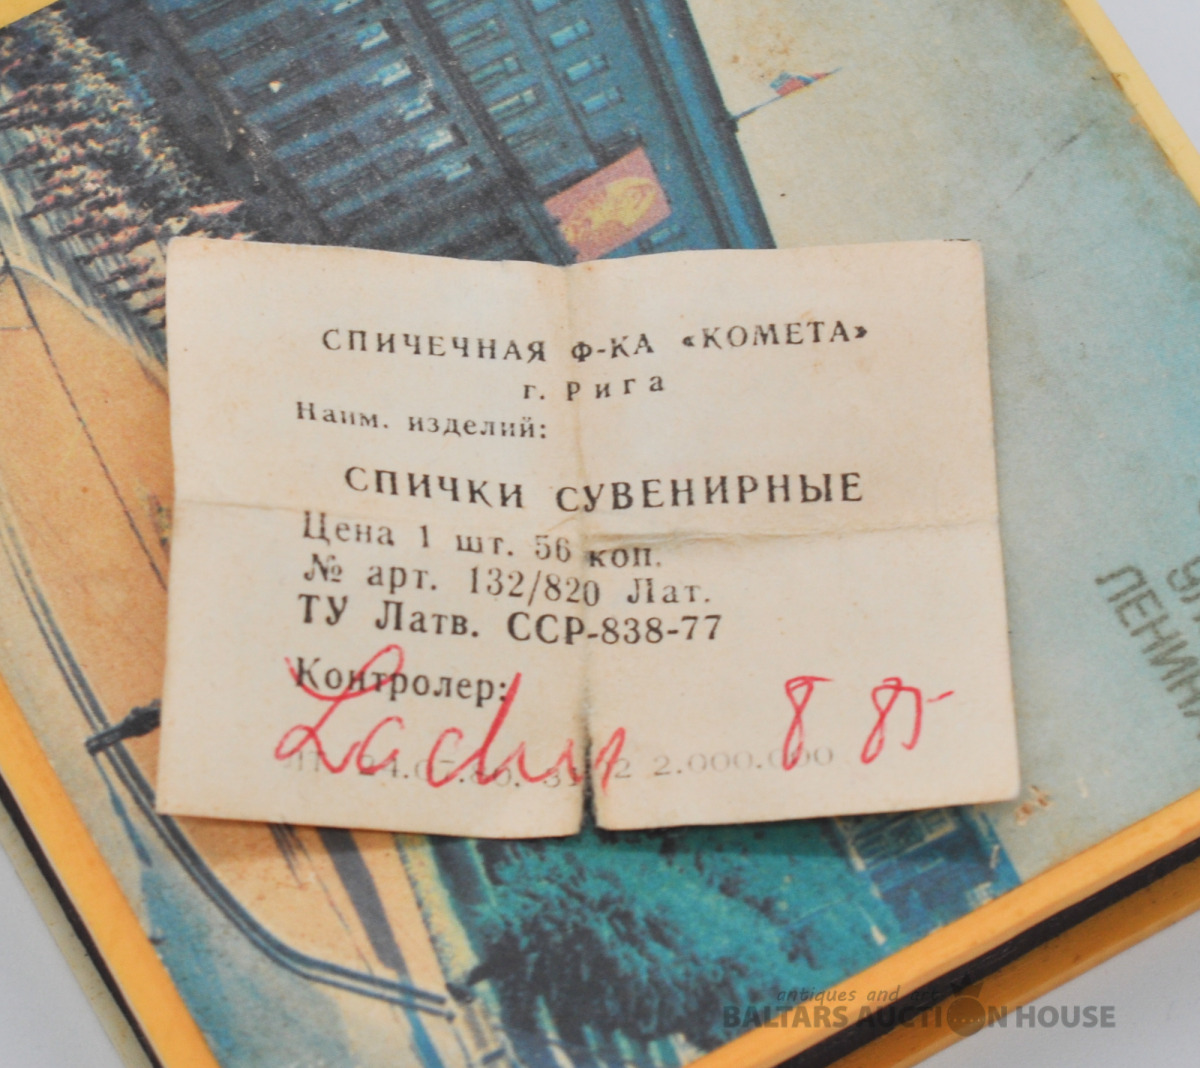 СПИЧЕЧНАЯ Ф-КА «КОМЕТА»
г. Рига
Наим. изделий:
СПИЧКИ СУВЕНИРНЫЕ
Цена 1 шт. 56 коп.
№ арт. 132/820 Лат.
ТУ Латв. ССР-838-77
Контролер:
8 85
2.000.000
ЛЕНИНА
antiques and art
BALTARS AUCTION HOUSE